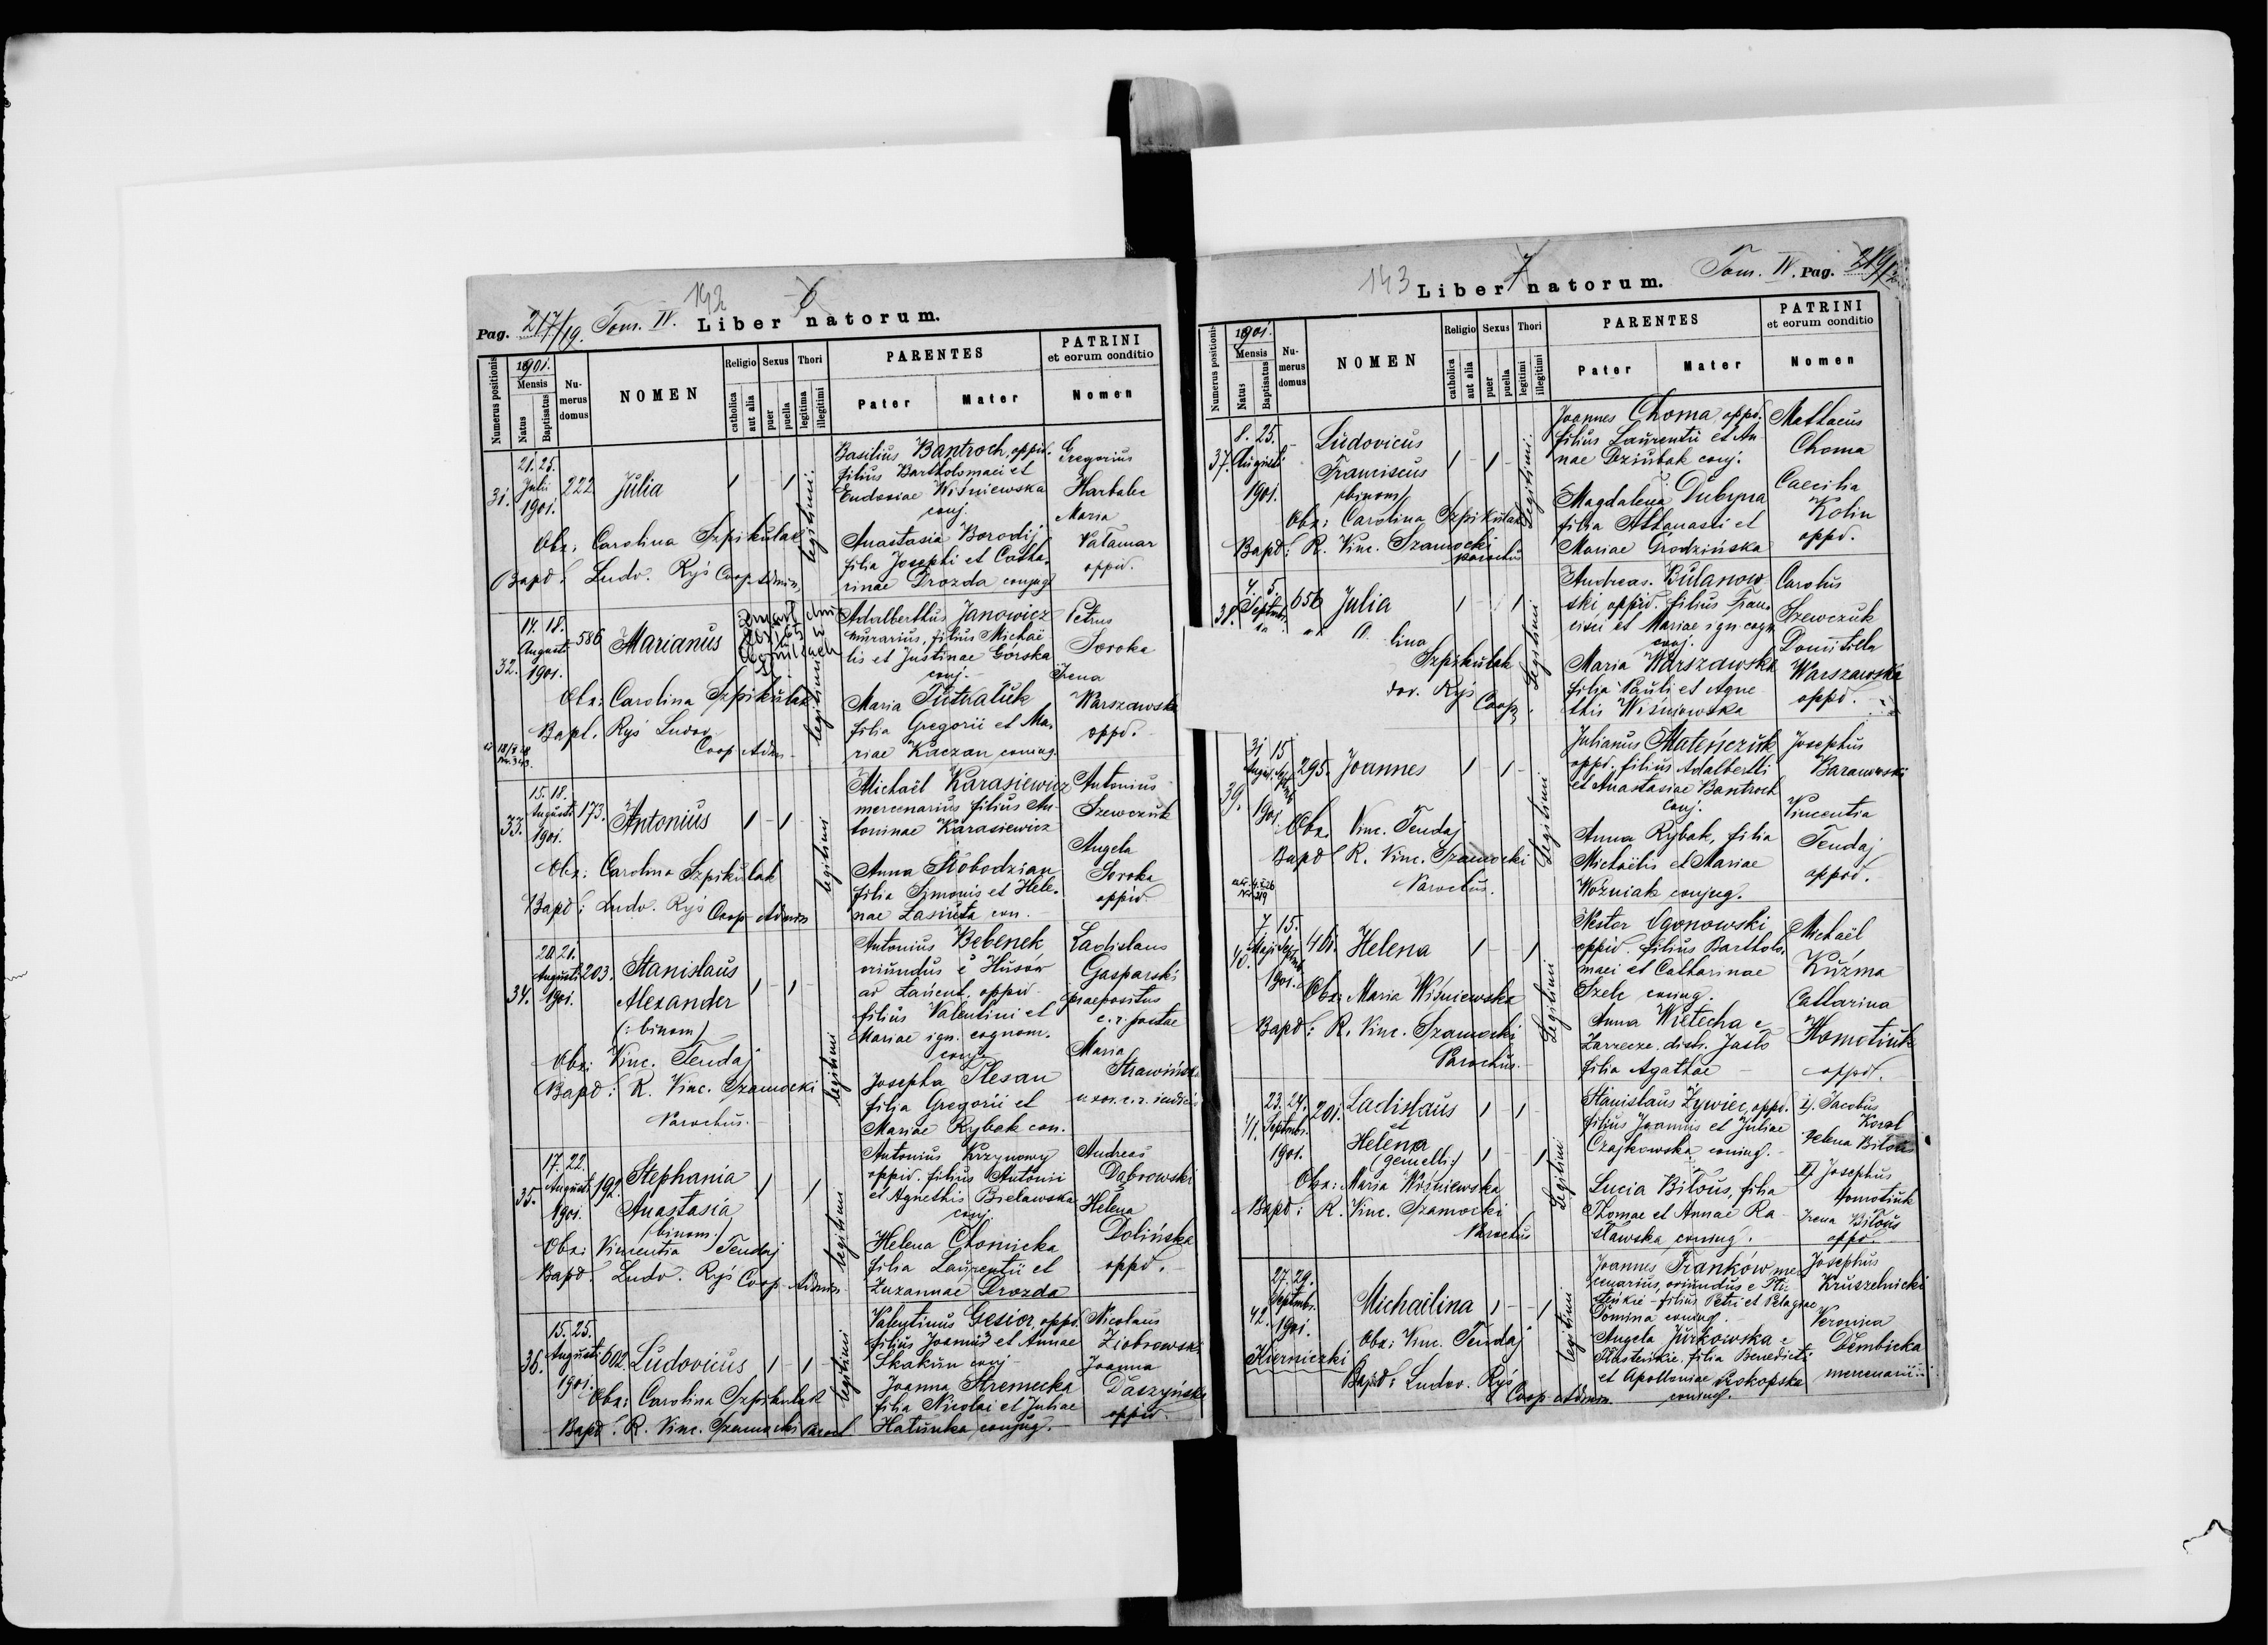 Pag. 217/19. Tom. IV. 142 6
Liber natorum.
Numerus positionis
1901.
Mensis
Natus
Baptisatus
Nu-
merus
domus
NOMEN
Religio
catholica
aut alia
Sexus
puer
puella
Thori
legitima
illegitimi
PARENTES
Pater
Mater
PATRINI
et eorum conditio
Nomen
31.
21. 25.
Julii
1901.
222
Julia
1 - - 1
legitimi.
Obz: Carolina Szpikulak
Bapd: Ludv. Ryś Coop. Admin.
Basilius Bantroch, oppid.
filius Bartholomaei et
Eudosiae Wiśniewska
conj.
Anastasia Borodij
filia Josephi et Catha-
rinae Drozda conjug.
Gregorius
Harbalec
Maria
Palamar
oppid.
32.
14. 18.
Augusti
1901.
586
Marianus
legitimi
Obz: Carolina Szpikulak
Bapt. Ryś Ludov.
Coop. Adm.
Adalberthus Janowicz
murarius, filius Michaë-
lis et Justinae Górska
conj.
Maria Tutraluk
filia Gregorii et Ma-
riae Kaczan, coniug.
Petrus
Soroka
Irena
Warszawska
oppd.
33.
15. 18.
Augusti
1901.
173.
Antonius
1 - 1 -
legitimi
Obz: Carolina Szpikulak
Bapd: Ludv. Ryś Coop. Admin
Michaël Karasiewicz
mercenarius filius An-
toninae Karasiewicz
Anna Słobodzian
filia Simonis et Hele-
nae Lasiuta con.
Antonius
Szewczuk
Angela
Soroka
oppid.
34.
20. 21.
Augusti
1901.
203.
Stanislaus
Alexander
(: binom)
1 - 1 -
legitimi
Obz: Vinc. Tendaj
Bapd: R. Vinc. Szamocki
Parochus.
Antonius Bebenek
oriundus e Husów
ad Łańcut, oppid
filius Valentini et
Mariae ign. cognom.
conj.
Josepha Plesan
filia Gregorii et
Mariae Rybak con.
Ladislaus
Gasparski
praepositus
c. r. postae
Maria
Strawińska
uxor. c. r. iudicis
35.
17. 22.
Augusti
1901.
192.
Stephania
Anastasia
(binom:)
1 1
legitimi
Obz: Vincentia Tendaj
Bapd. Ludv. Ryś Coop. Admin
Antonius Krzynowy
oppid. filius Antonii
et Agnethis Bielawska
conj.
Helena Chomicka
filia Laurentii et
Zuzannae Drozda
Andreas
Dąbrowski
Helena
Dolińska
oppd.
36.
15. 25.
Augusti
1901.
602.
Ludovicus
1 - 1 -
legitimi
Obz: Carolina Szpikulak
Bapd. R. Vinc. Szamocki Paroch
Valentinus Gesior, oppd.
filius Joannis et Annae
Skakun conj
Joanna Stremecka
filia Nicolai et Juliae
Hatunka conjug.
Nicolaus
Ziobrowski
Joanna
Daszyńska
oppid.
143 7 Tom. IV. Pag. 219/
Liber natorum.
Numerus positionis
1901.
Mensis
Natus
Baptisatus
Nu-
merus
domus
NOMEN
Religio
catholica
aut alia
Sexus
puer
puella
Thori
legitimi
illegitimi
PARENTES
Pater
Mater
PATRINI
et eorum conditio
Nomen
37.
8. 25.
Augusti
1901.
Ludovicus
Franciscus
(binom)
1 - 1 -
Legitimi.
Obz: Carolina Szpikulak
Bapd: R. Vinc. Szamocki
parochus
Joannes Choma, oppd.
filius Laurentii et An-
nae Dziubak conj.
Magdalena Dubyna
filia Athanasii et
Mariae Grodzińska
Mathaeus
Choma
Caecilia
Kolin
oppd.
38.
4. 5.
Septmb.
656
Julia
1 - - 1
Legitimi
lina
Szpikulak
dov. Ryś
Coop.
Andreas Bulanow-
ski, oppid. filius Fran-
cisci et Mariae ign. cogn
conj.
Maria Warszawska
filia Pauli et Agne-
this Wiśniowska
Carolus
Szewczuk
Domitilla
Warszawska
oppd.
39.
31 15
1901.
295.
Joannes
1 - 1 -
Legitimi
Obz. Vinc. Tendaj
Bapd R. Vinc. Szamocki
Parochus.
Julianus Mateńczuk
oppd. filius Adalberti
et Anastasiae Bantroch
conj.
Anna Rybak, filia
Michaëlis et Mariae
Woźniak conjug.
Josephus
Baranowski
Vincentia
Tendaj
oppid.
40.
7. 15.
1901.
Helena
1 - - 1
Legitimi
Obz: Maria Wiśniewska
Bapd: R. Vinc. Szamocki
Parochus.
Nestor Ogonowski
oppid. filius Bartholo-
maei et Catharinae
Szelc coniug.
Anna Wietecha e
Zarzecze, distr. Jasło
filia Agathae
Michaël
Kuźma
Catharina
Homotiuk
oppd.
41.
23. 24.
Septmbr.
1901.
201.
Ladislaus
et
Helena
(gemelli:)
1 - 1 -
1 - 1
Legitimi
Obz: Maria Wiśniewska
Bapd: R. Vinc. Szamocki
Parochus
Stanislaus Żywiec, oppd.
filius Joannis et Juliae
Czajkowska coniug.
Lucia Biłous, filia
Thomae et Annae Ra-
sławska, coniug.
I). Jacobus
Koral
Helena Biłous
II) Josephus
Homotiuk
Irena Biłous
oppd.
42.
27. 29.
Septmbr.
1901.
Kierniczki
Michaëlina
1 - - 1
legitimi
Obz: Vinc. Tendaj
Bapd: Ludov. Ryś
Coop. Admin.
Joannes Franków mer-
cenarius, oriundus e
filius Petri et Pelagiae
Domina coniug.
Angela Jurkowska e
filia Benedicti
et Apolloniae Prokopska
coniug.
Josephus
Kruszelnicki
Veronica
Dembicka
mercenarii